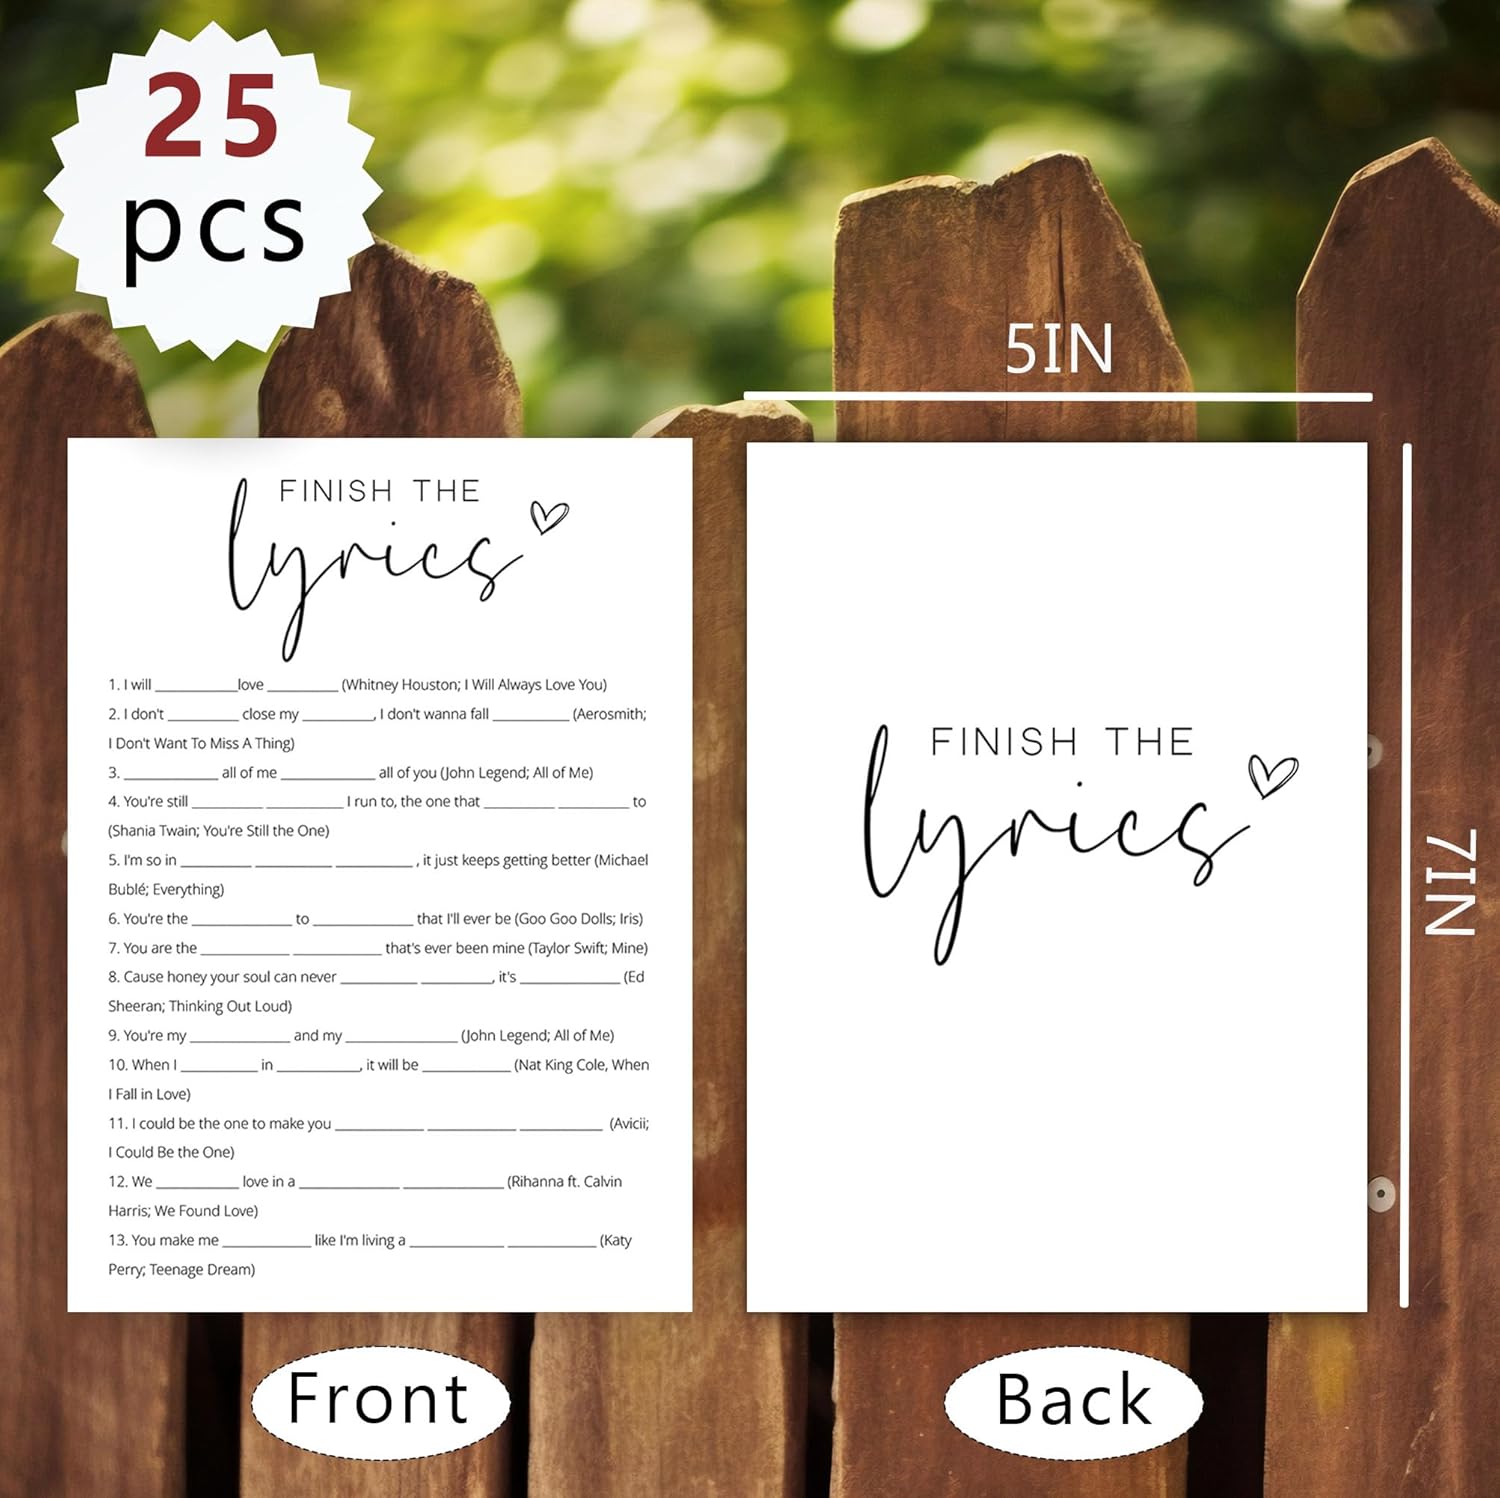 25
pcs
5IN
7IN
FINISH THE
lyrics
1. I will __________love _________ (Whitney Houston; I Will Always Love You)
2. I don't _________ close my _________, I don't wanna fall __________ (Aerosmith;
I Don't Want To Miss A Thing)
3. ____________ all of me ____________ all of you (John Legend; All of Me)
4. You're still _________ __________ I run to, the one that _________ _________ to
(Shania Twain; You're Still the One)
5. I'm so in _________ __________ __________ , it just keeps getting better (Michael
Bublé; Everything)
6. You're the _____________ to _____________ that I'll ever be (Goo Goo Dolls; Iris)
7. You are the ___________ ___________ that's ever been mine (Taylor Swift; Mine)
8. Cause honey your soul can never __________ _________, it's _____________ (Ed
Sheeran; Thinking Out Loud)
9. You're my _____________ and my ______________ (John Legend; All of Me)
10. When I __________ in ___________, it will be ___________ (Nat King Cole, When
I Fall in Love)
11. I could be the one to make you ___________ ___________ ___________ (Avicii;
I Could Be the One)
12. We ___________ love in a ____________ _____________ (Rihanna ft. Calvin
Harris; We Found Love)
13. You make me ___________ like I'm living a ____________ ___________ (Katy
Perry; Teenage Dream)
FINISH THE
lyrics
Front
Back